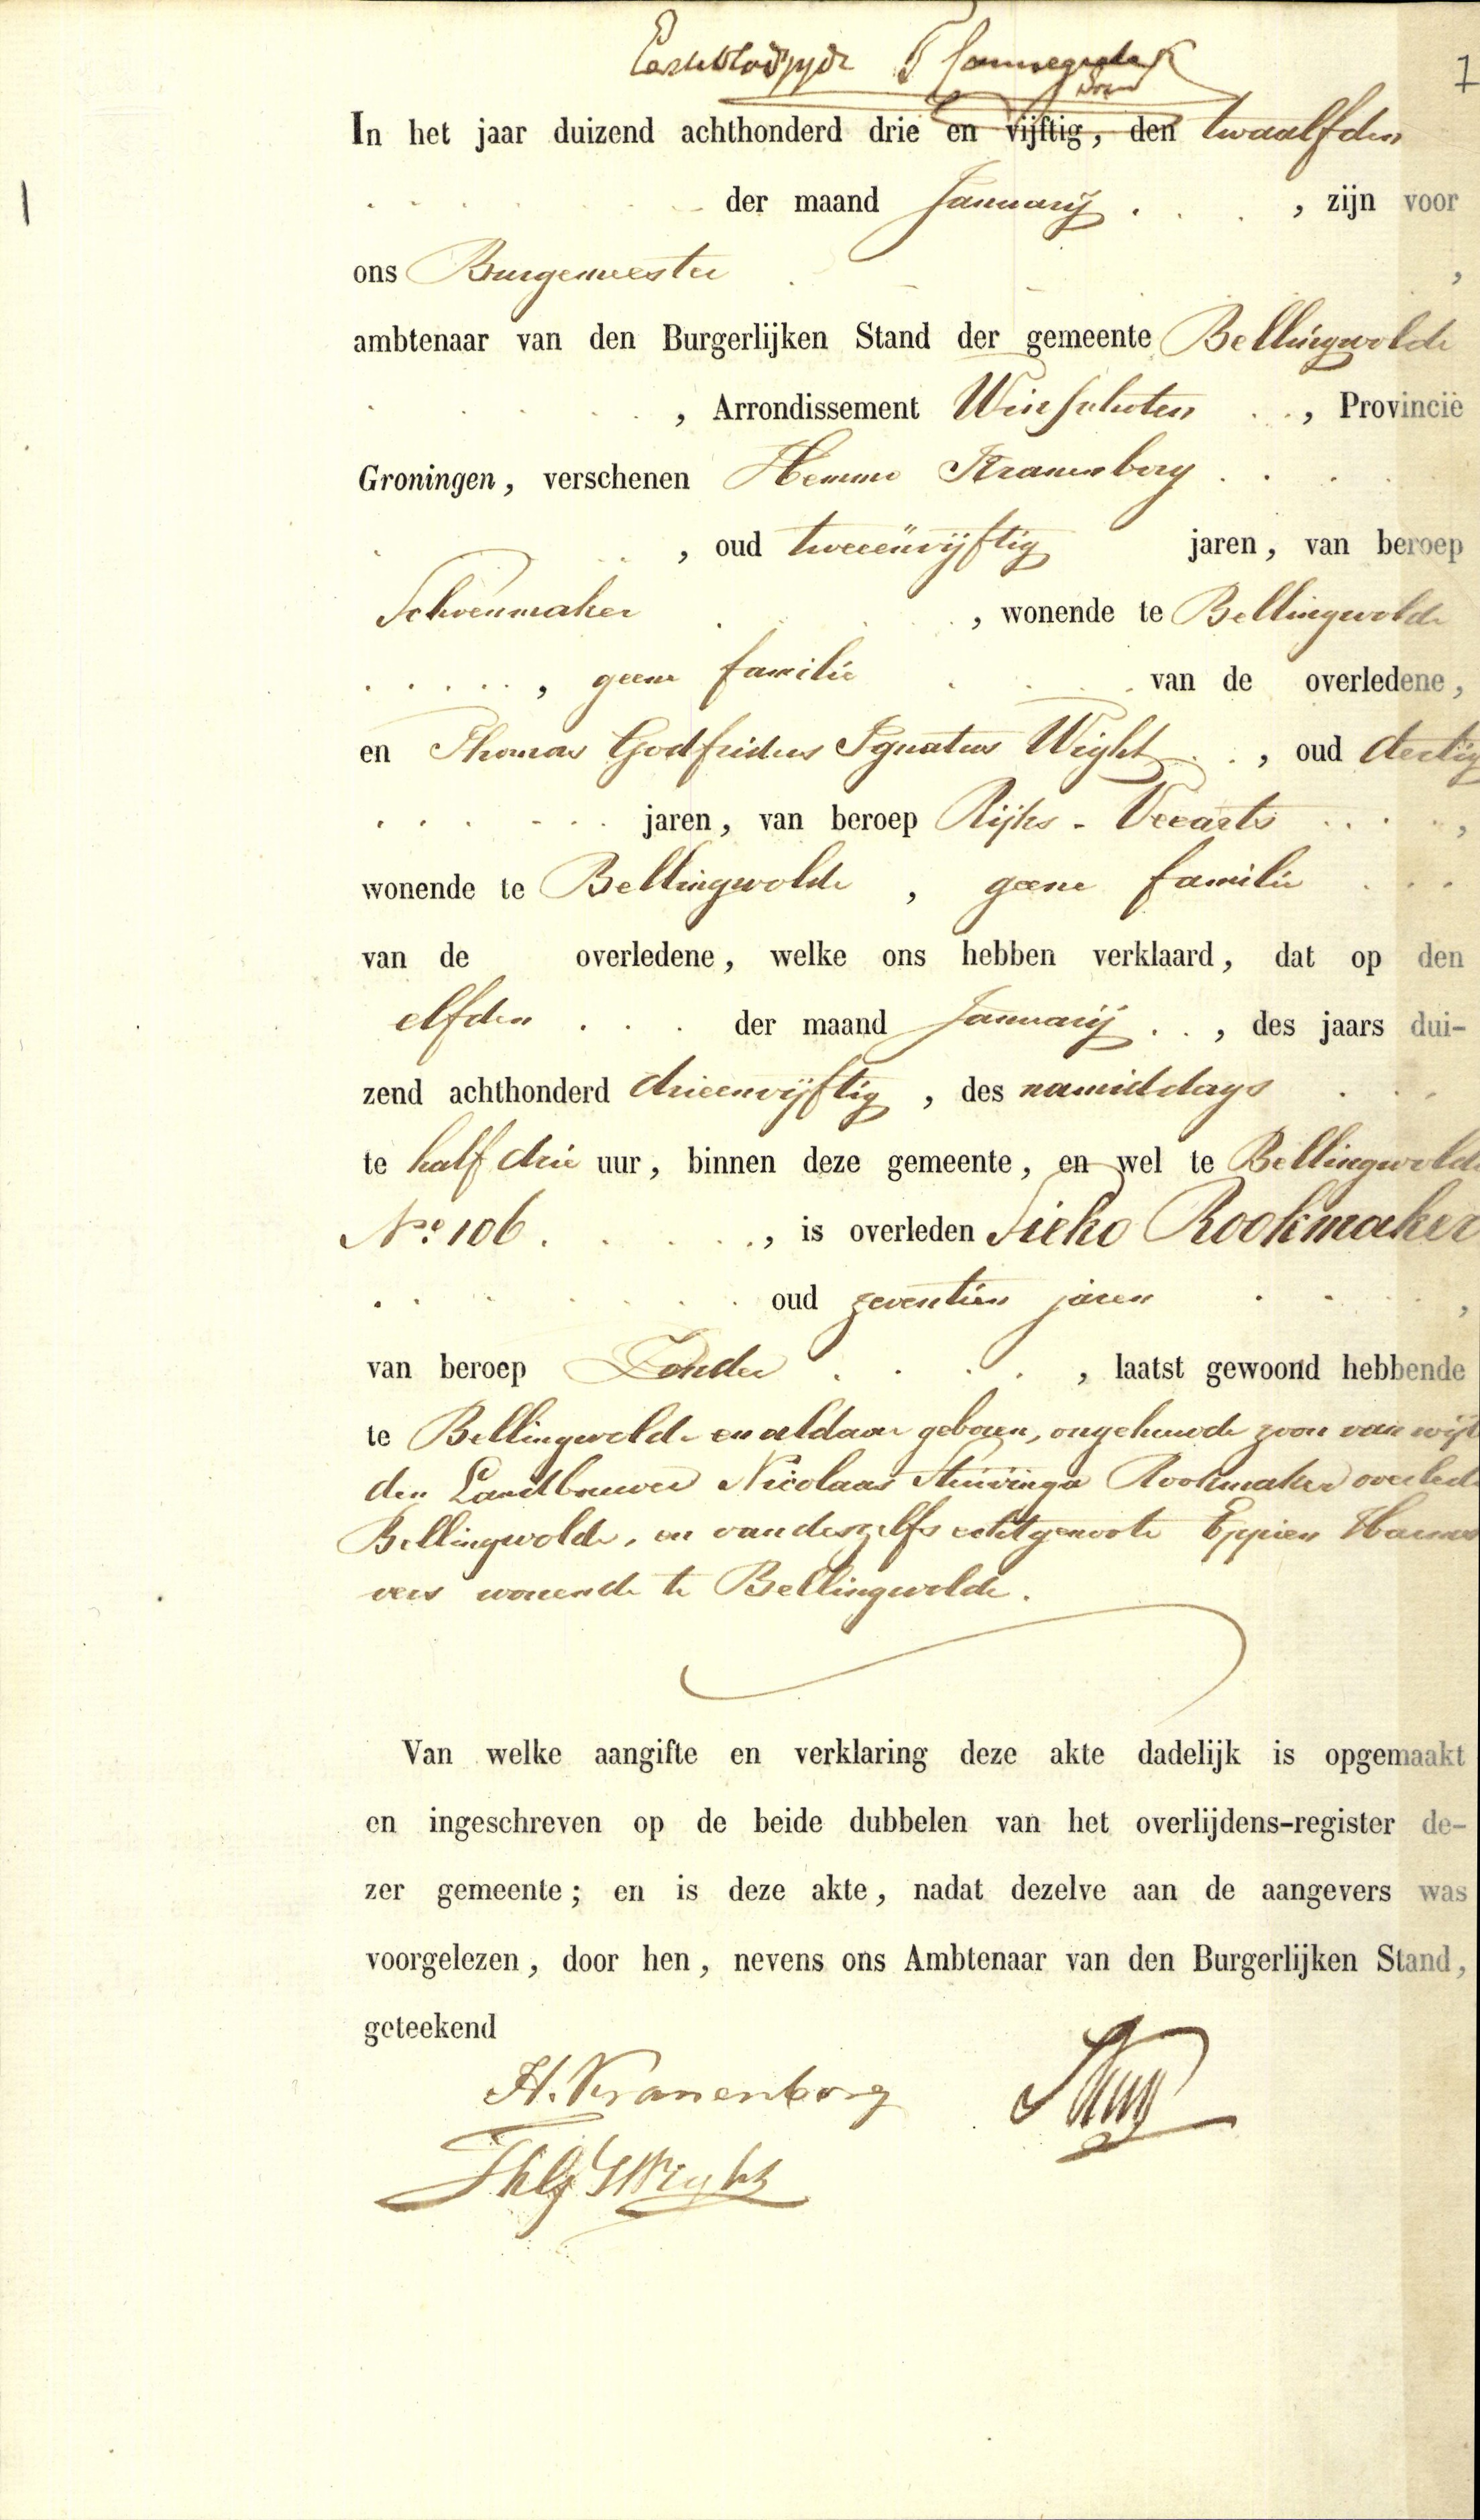 Eerste blad
1
In het jaar duizend achthonderd drie en vijftig, den twaalfden
1
der maand Januarij . . . , zijn voor
ons Burgemeester ,
ambtenaar van den Burgerlijken Stand der gemeente Bellingwolde
, Arrondissement Winschoten . . , Provincie
Groningen, verschenen Hemmo Kranenborg . . .
, oud tweeënvijftig jaren, van beroep
Schoenmaker , wonende te Bellingwolde
. . . . . , geene familie van de overledene,
en Thomas Godfridus Ignatius Wight . . , oud dertig
. . . . . . jaren, van beroep Rijks - Veearts . . . . ,
wonende te Bellingwolde , geene familie . . .
van de overledene, welke ons hebben verklaard, dat op den
elfden . . . der maand Januarij . . , des jaars dui-
zend achthonderd drieenvijftig , des namiddags
te half drie uur, binnen deze gemeente, en wel te Bellingwolde
No. 106 . . . . . , is overleden Fieko Rookmaker
oud zeventien jaren ,
van beroep Zonder . . . . , laatst gewoond hebbende
te Bellingwolde en aldaar geboren, ongehuwde zoon van wijl
den Landbouwer Nicolaas Stuivinga Rookmaker overled
Bellingwolde, en van deszelfs echtgenoote Eppien
wonende te Bellingwolde.
Van welke aangifte en verklaring deze akte dadelijk is opgemaakt
en ingeschreven op de beide dubbelen van het overlijdens-register de-
zer gemeente; en is deze akte, nadat dezelve aan de aangevers was
voorgelezen, door hen, nevens ons Ambtenaar van den Burgerlijken Stand,
geteekend
H. Kranenborg
ThGIWight